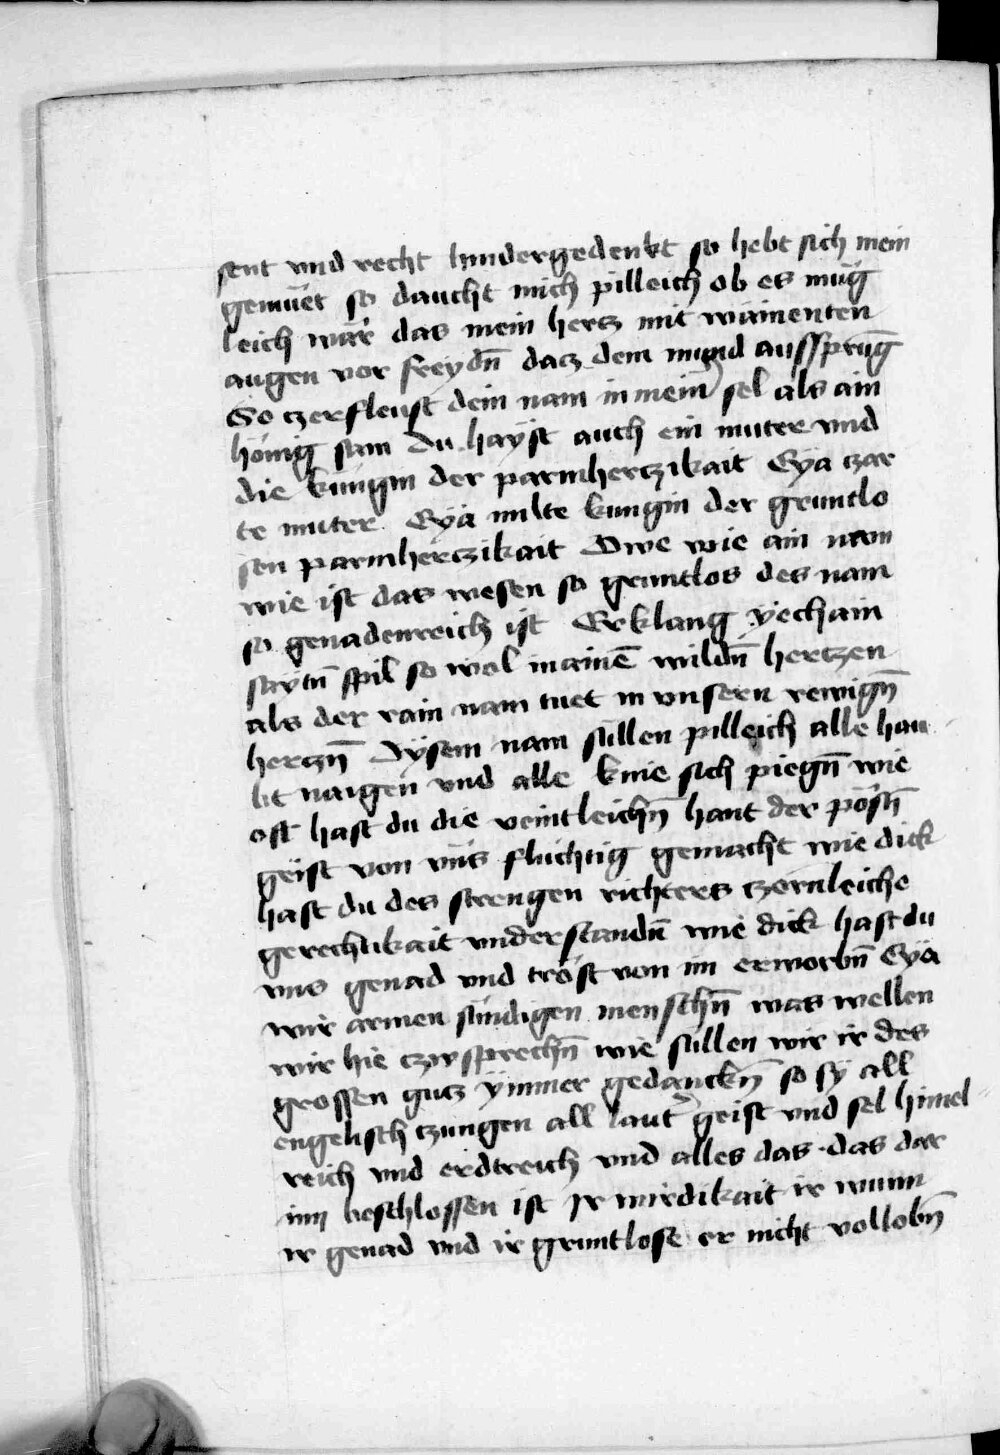 sent vnd recht hindergedenkt so hebt sich mein
gemüet so daucht mich pilleich ob es müg
leich wär das mein hertz mit wäinenten
augen vor freydn̄ dacz dem mund ausspru̅g
So czerfleust dein nam in mein) sel als ain
hönig sam Du hayst auch ein muter vnd
die künigin der parmhertzikait Eya czar
te muter Eya milte kunigin der gruntlo
sen parmherczikait Owe wie ain nam
wie ist das wesen so gruntlos des nam
so genadenreich ist Erklang yechain
saytn̄ spil so wol in ainē wildn̄ hertzen
als der rain nam tuet in vnsern rewign̄
herczn̄ Dysem nam sullen pilleich alle hau
bt naigen vnd alle knie sich piegn̄ wie
oft hast du die veintleichn̄ hant der pösn̄
geist von vns fluchtig gemacht wie dick
hast du des strengen richters czornleiche
gerechtikait vnderstandn̄ wie dick hast du
vns genad vnd tröst von im erworbn̄ Eya
wir armen sündigen menschn̄ was wellen
wir hie czwsprechn̄ wie sullen wir ir des
grossen gutz ymmer gedanckn̄ so sy all
englisch czungen all lautʼ geist vnd sel himel
reich vnd erdtreich vnd alles das das dar
inn beschlossen ist Ir wirdikait ir wunn
ir genad vnd ir gruntlose er nicht vollobn̄